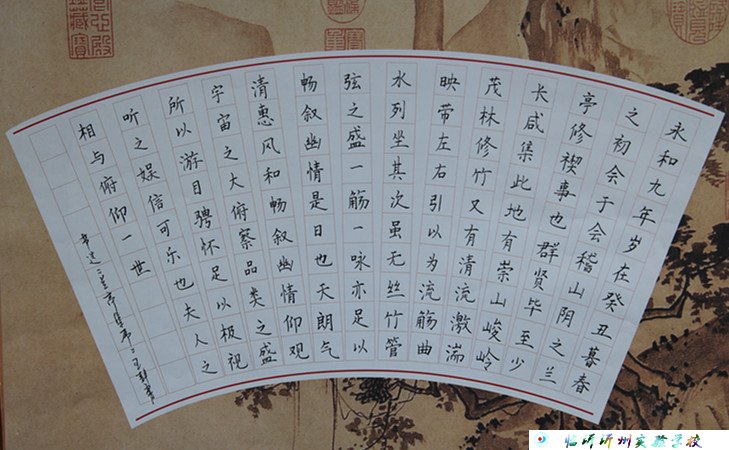 永和九年岁在癸丑暮春
之初会于会稽山阴之兰
亭修禊事也群贤毕至少
长咸集此地有崇山峻岭
茂林修竹又有清流激湍
映带左右引以为流觞曲
水列坐其次虽无丝竹管
弦之盛一觞一咏亦足以
畅叙幽情是日也天朗气
清惠风和畅叙幽情仰观
宇宙之大俯察品类之盛
所以游目骋怀足以极视
听之娱信可乐也夫人之
相与俯仰一世
临沂沂州实验学校